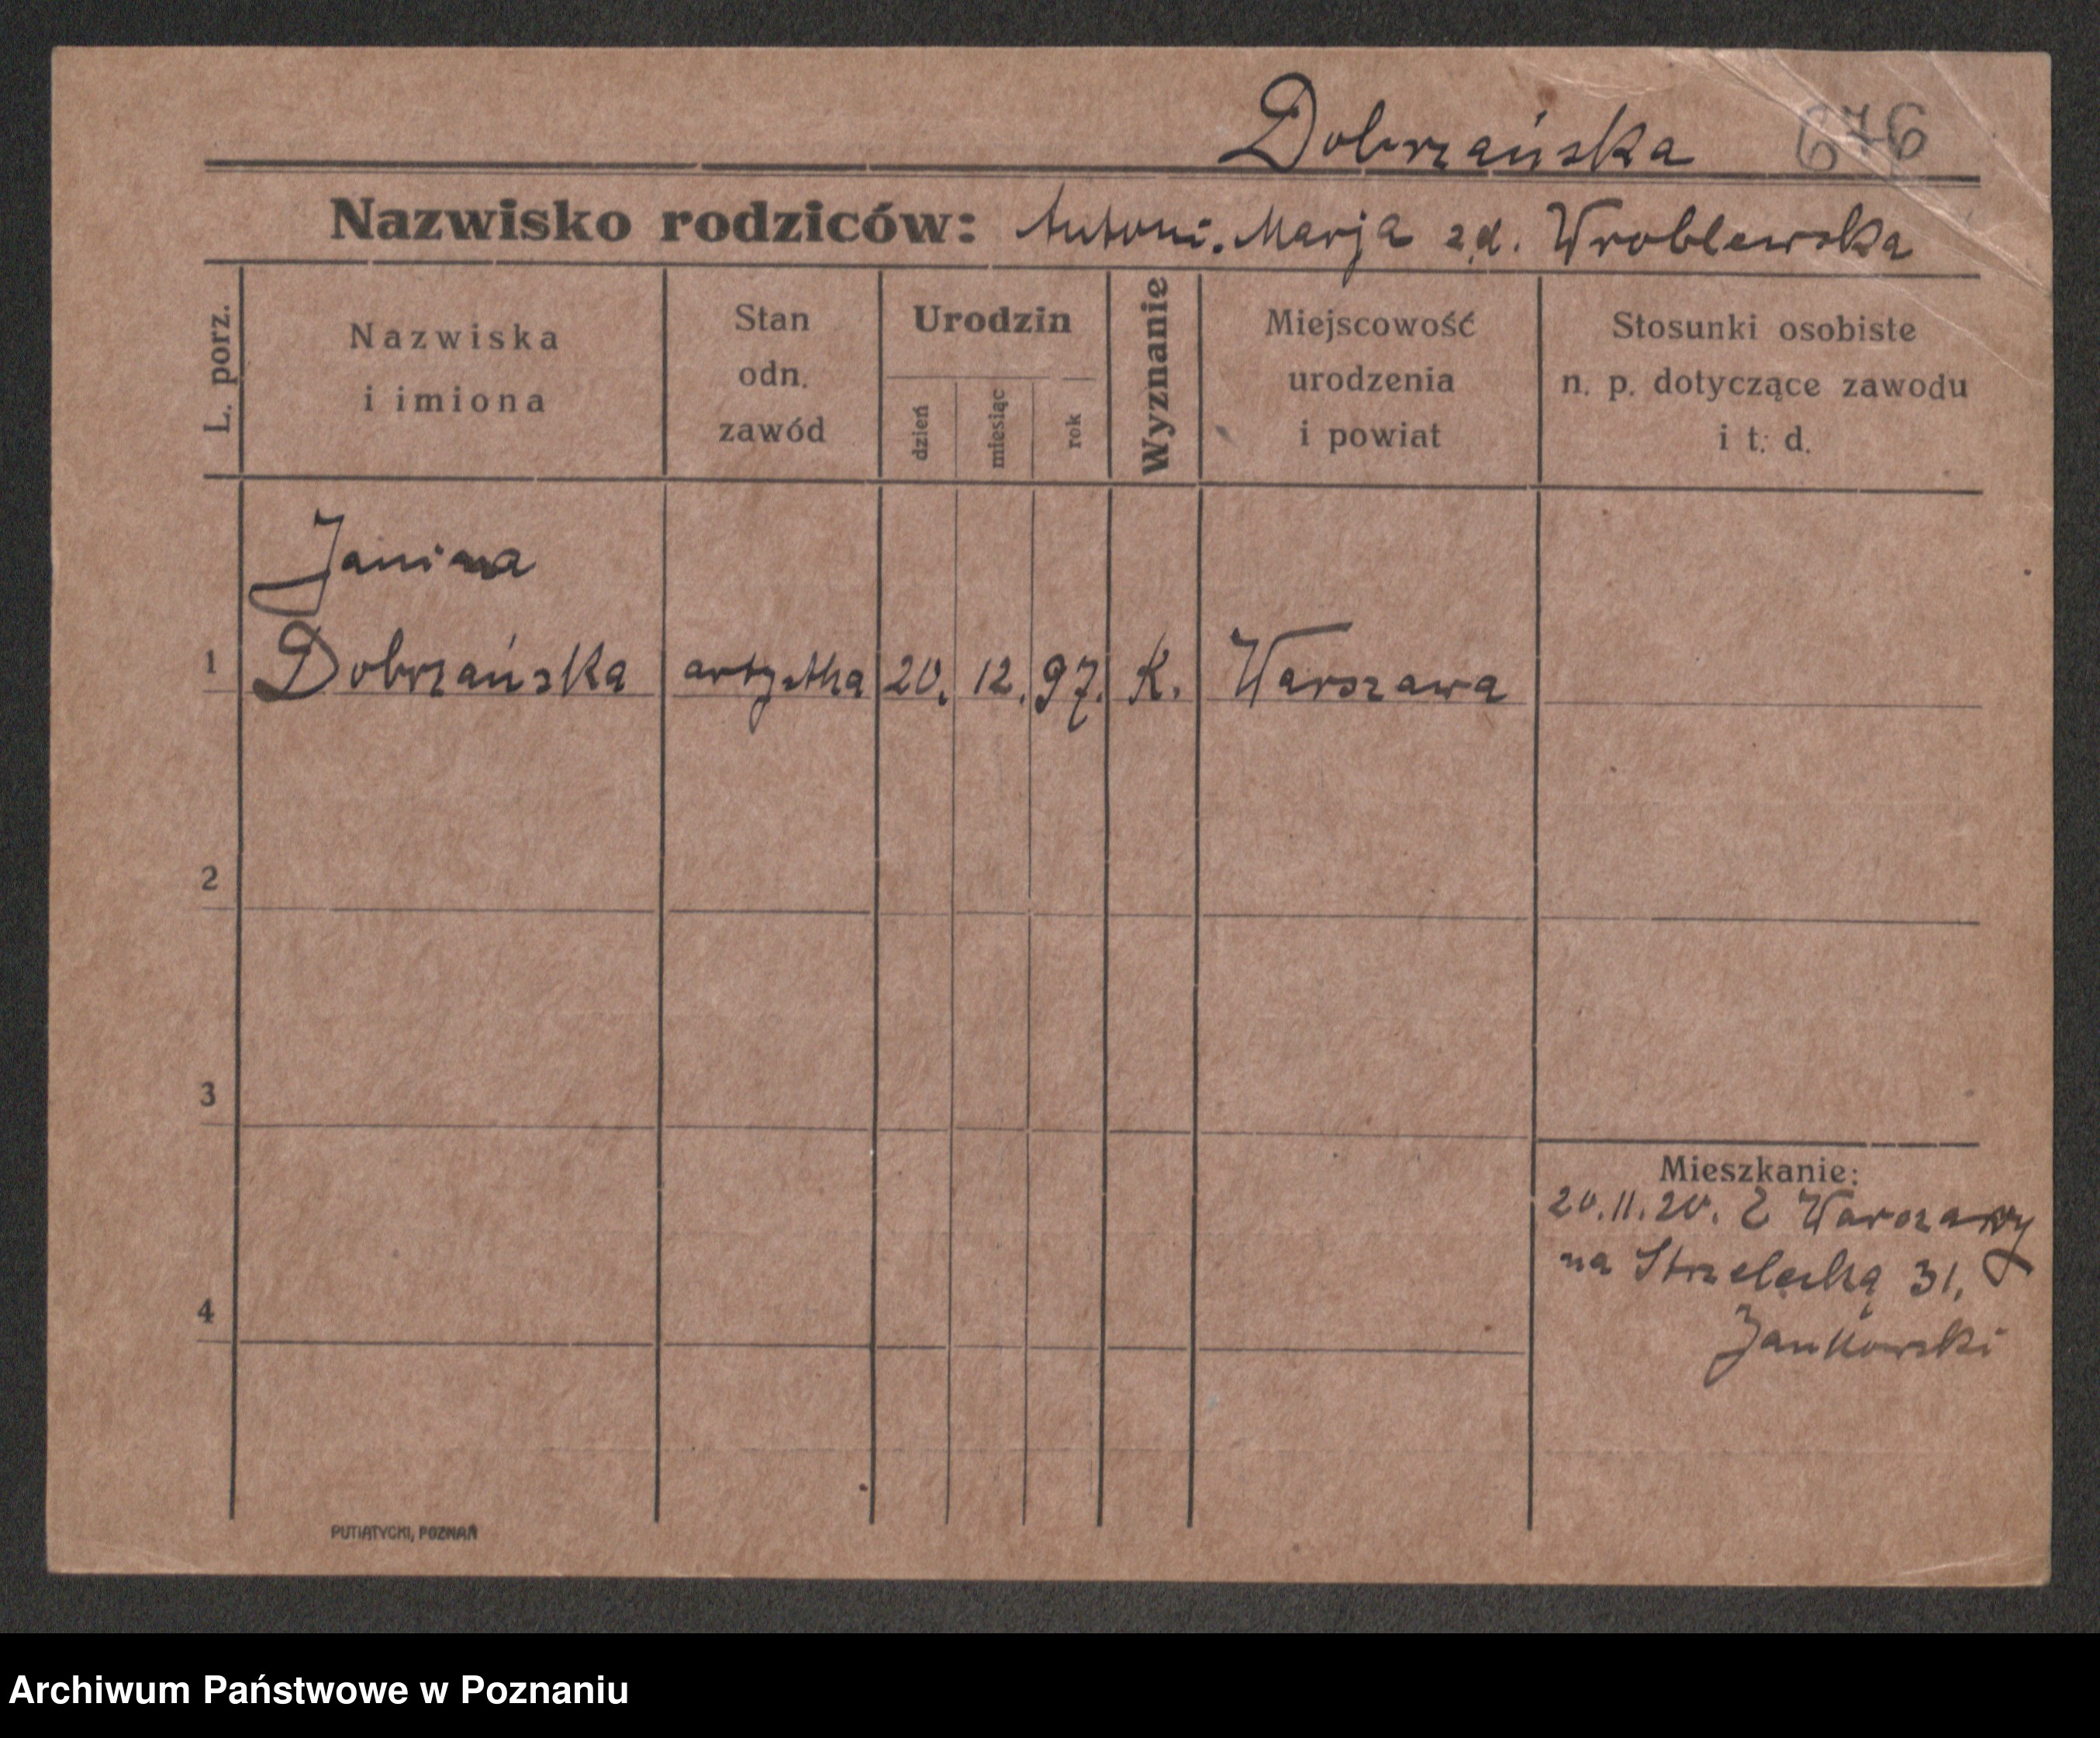 Dobrzańska 676
Nazwisko rodziców: Antoni. Marja z d. Wroblewska
L. porz.
Nazwiska
i imiona
Stan
odn.
zawód
Urodzin
dzień
miesiąc
rok
Wyznanie
Miejscowość
urodzenia
i powiat
Stosunki osobiste
n. p. dotyczące zawodu
i t. d.
Janina
1 Dobrzańska artystka 20. 12. 97. K. Warszawa
2
3
4
Mieszkanie:
20.11.20. Z Warszawy
na Strzelecką 31,
Jankowski
PUTIATYCKI, POZNAŃ
Archiwum Państwowe w Poznaniu